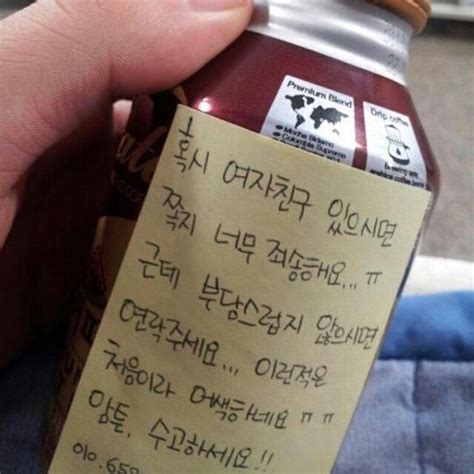 Premium Blend
Mocha Sidamo
Colombia Supremo
Drip coffee
혹시 여자친구 있으시면
쪽지 너무 죄송해요... ㅠ
근데 부담스럽지 않으시면
연락주세요... 이런적은
처음이라 어색하네요 ㅠㅠ
암튼, 수고하세요!!
010.658